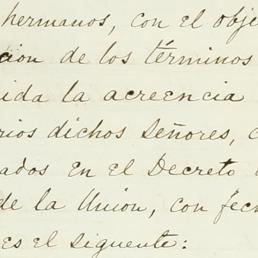 hermanos, con el obje
cion de los términos
ida la acreencia
rios dichos Señores, c
ados en el Decreto
de la Union, con fec
es el siguente: